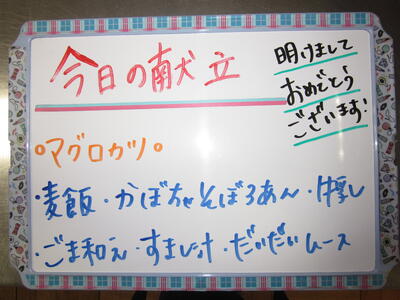 今日の献立
明けまして
おめでとう
ございます!
○マグロカツ○
・麦飯・かぼちゃそぼろあん・
・ごま和え・すまし汁・だいだいムース